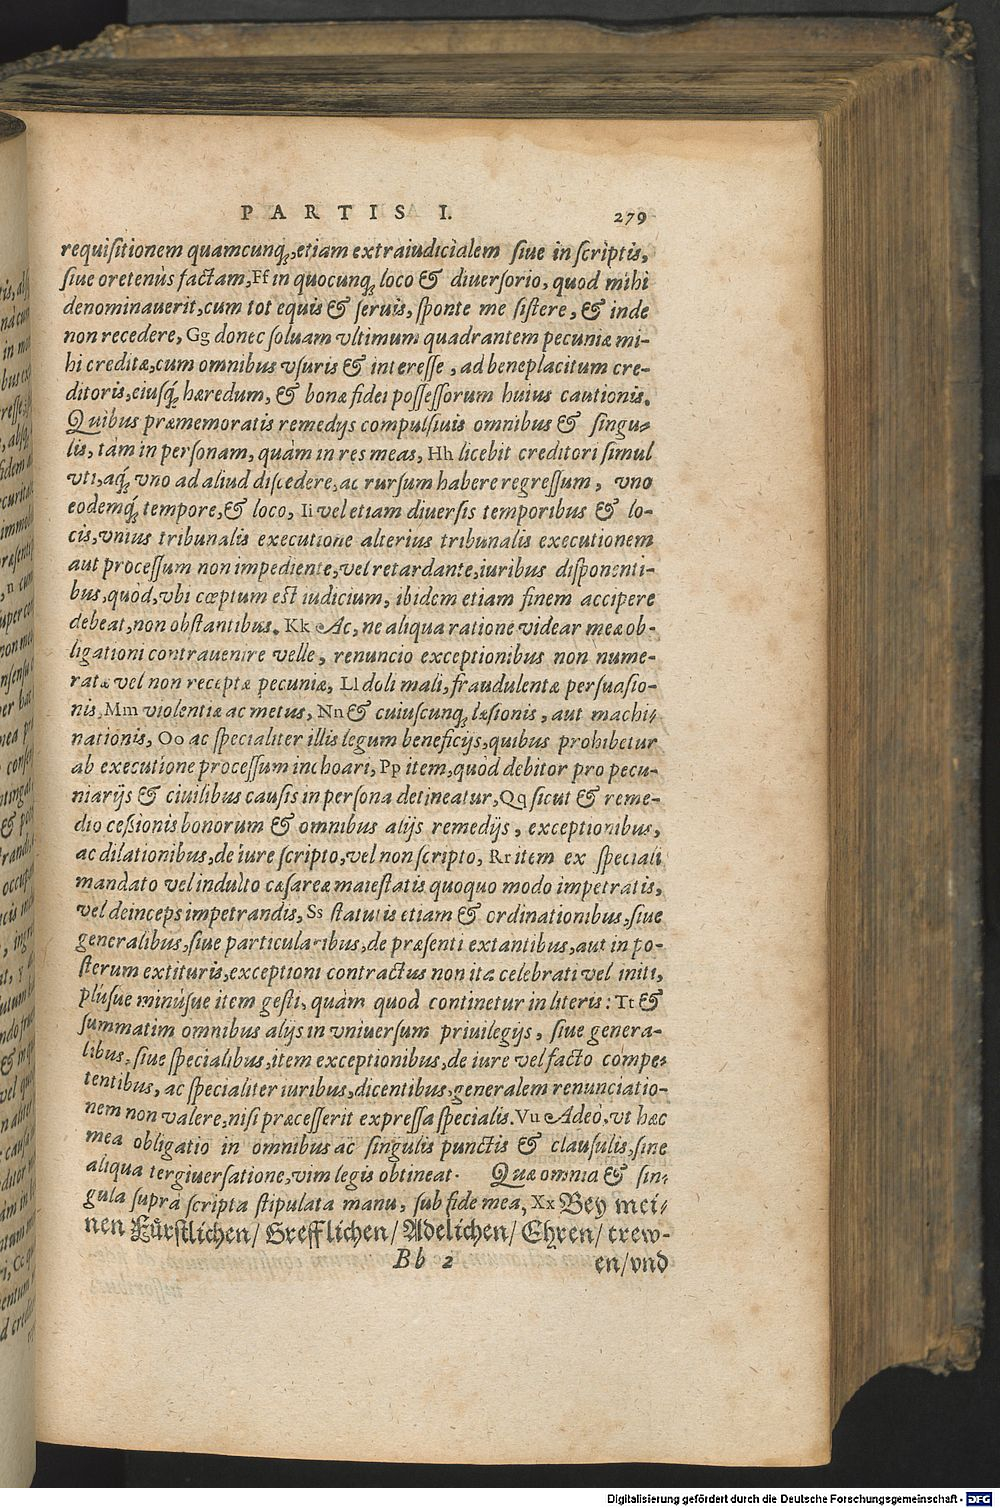 PARTIS I. 279
requisitionem quamcunq́;,etiam extraiudicialem siue in scriptis,
siue oretenùs factam,Ff in quocunq́; loco & diuersorio, quod mihi
denominauerit,cum tot equis & seruis, sponte me sistere, & inde
non recedere, Gg donec soluam vltimum quadrantem pecuniæ mi-
hi creditæ,cum omnibus vsuris & interesse, ad beneplacitum cre-
ditoris,eiusq́; hæredum, & bonæ fidei possessorum huius cautionis.
Quibus præmemoratis remedys compulsiuis omnibus & singu-
lis, tàm in personam, quàm in res meas, Hh licebit creditori simul
vti, aq́; vno ad aliud discedere, ac rursum habere regressum, vno
eodemq́; tempore,& loco, Ii vel etiam diuersis temporibus & lo-
cis,vnius tribunalis executione alterius tribunalis executionem
aut processum non impediente,vel retardante,iuribus disponenti-
bus,quòd,vbi cœptum est iudicium, ibidem etiam finem accipere
debeat,non obstantibus. Kk Ac, ne aliqua ratione videar meæ ob-
ligationi contrauenire velle, renuncio exceptionibus non nume-
ratæ vel non receptæ pecuniæ, Ll doli mali, fraudulentæ persuasio-
nis,Mm violentiæ ac metus, Nn & cuiuscunq́; læsionis, aut machi-
nationis, Oo ac specialiter illis legum beneficijs,quibus prohibetur
ab executione processum inchoari, Pp item,quòd debitor pro pecu-
niarijs & ciuilibus causis in persona detineatur,Qq sicut & reme-
dio cessionis bonorum & omnibus alijs remedijs, exceptionibus,
ac dilationibus,de iure scripto,vel non scripto, Rr item ex speciali
mandato vel indulto cæsareæ maiestatis quoquo modo impetratis,
vel deinceps impetrandis, Ss statutis etiam & ordinationibus,siue
generalibus,siue particularibus,de præsenti extantibus,aut in po-
sterum extituris,exceptioni contractus non ita celebrati vel initi,
plúsue minúsue item gesti, quàm quod continetur in literis: Tt &
summatim omnibus alijs in vniuersum priuilegijs, siue genera-
libus, siue specialibus,item exceptionibus,de iure vel facto compe-
tentibus, ac specialiter iuribus,dicentibus,generalem renunciatio-
nem non valere,nisi præcesserit expressa specialis. Vu Adeò, vt hæc
mea obligatio in omnibus ac singulis punctis & clausulis,sine
aliqua tergiuersatione,vim legis obtineat. Quæ omnia & sin-
gula supra scripta stipulata manu, sub fide mea, Xx Bey mei-
nen Fürstlichen/ Grefflichen/ Adelichen/ Ehren/ trew-
Bb 2 en/vnd
Digitalisierung gefördert durch die Deutsche Forschungsgemeinschaft - DFG